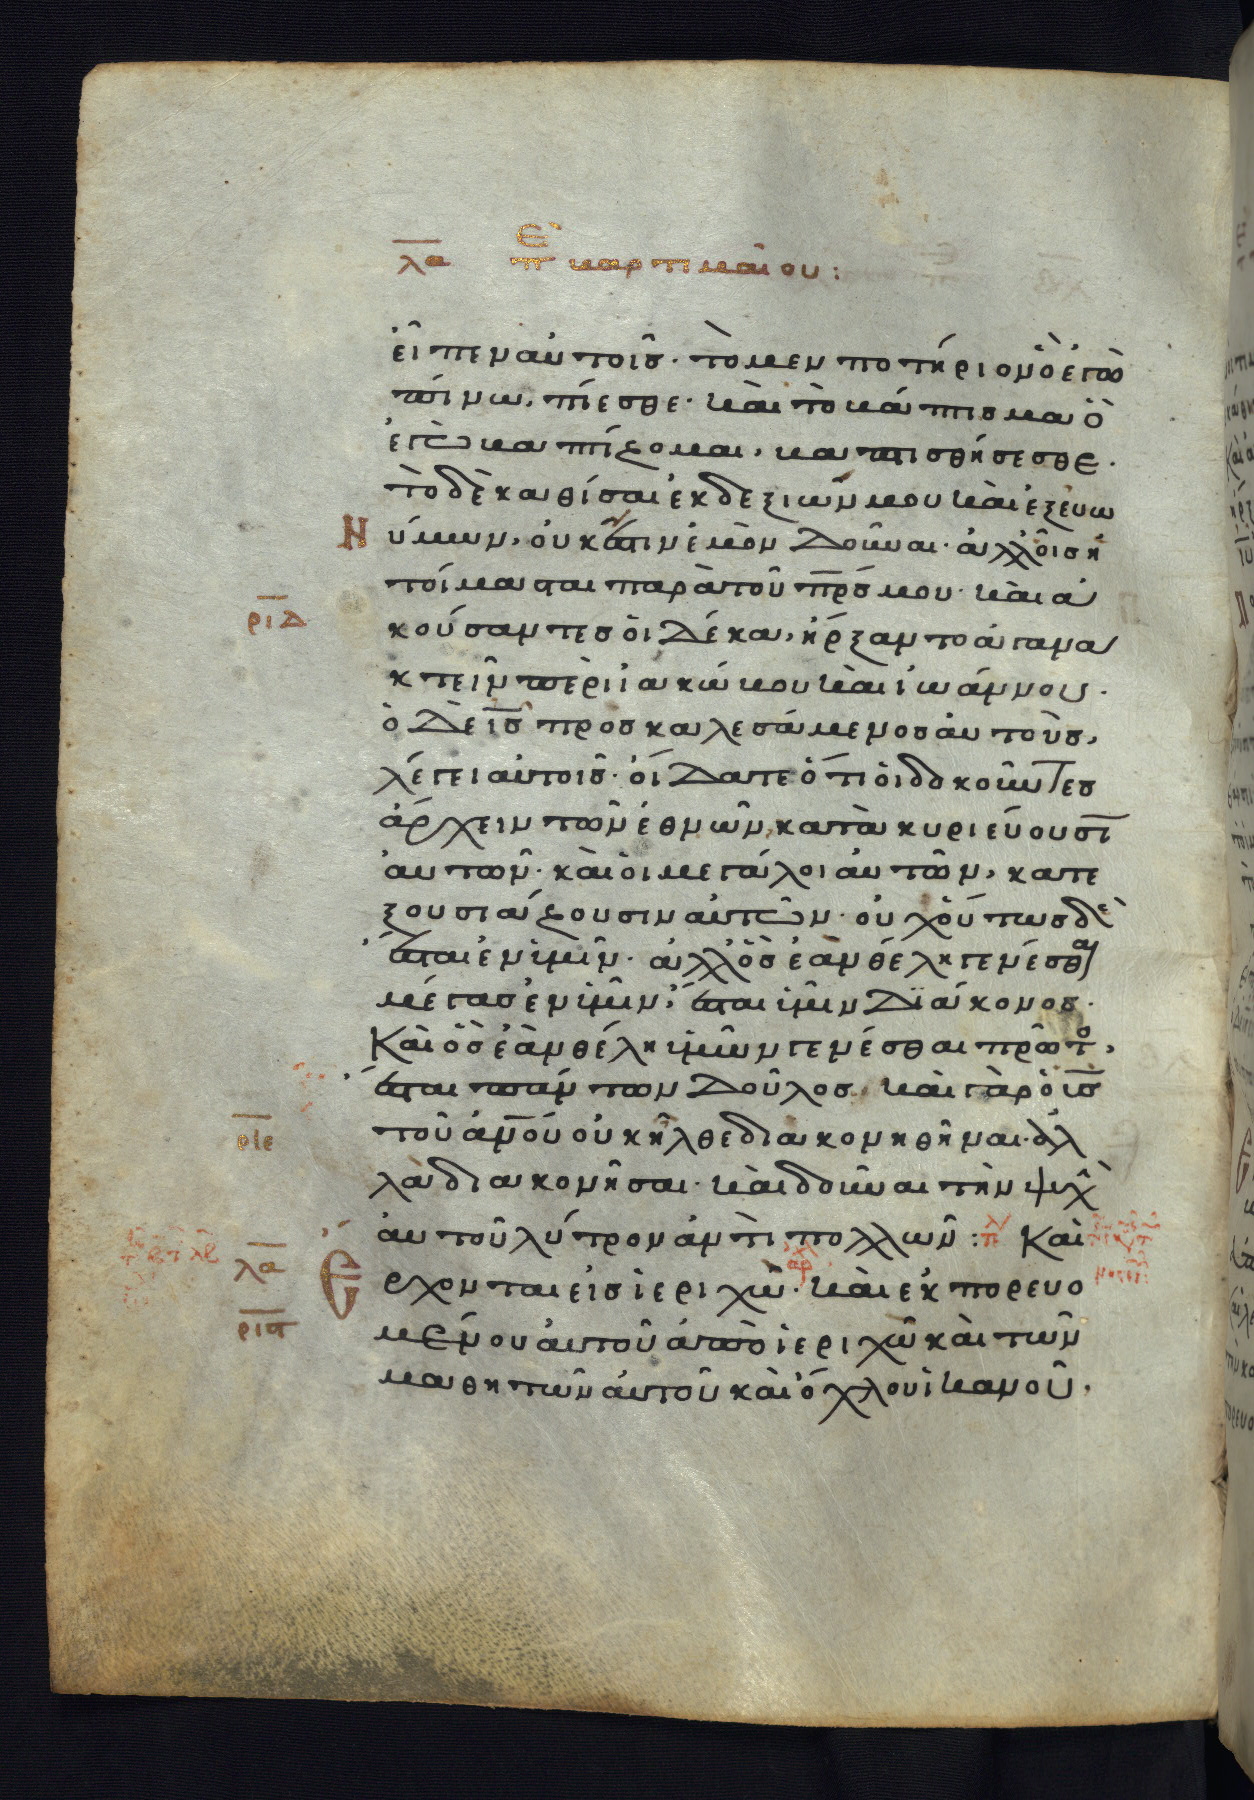 λα περ βαρτιμαίου:
εἶπεν αὐτοῖς· τὸ μεν ποτήριον ὃ ἐγὼ
πίνω, πίεσθε· καὶ τὸ βάπτισμα ὃ
ἐγὼ βαπτίζομαι, βαπτισθήσεσθε·
τὸ δὲ καθίσαι ἐκ δεξιῶν μου καὶ ἐξ ευω
νύμων, οὐκ ἔστιν ἐμὸν δοῦναι· ἀλλ' οἷς ἡ
ριδ τοίμασται παρὰ τοῦ πρς μου· καὶ ἀ
κούσαντες οἱ δέκα, ἤρξαντο ἀγανα
κτεῖν περὶ ἰακώβου καὶ ἰωάννου·
ὁ δὲ ις προσκαλεσάμενος αὐτοὺς,
λέγει αὐτοῖς· οἴδατε ὅτι οἱ δοκοῦντες
ἄρχειν τῶν ἐθνῶν, κατακυριεύουσι
αὐτῶν· καὶ οἱ μεγάλοι αὐτῶν, κατε
ξουσιάζουσιν αὐτῶν· οὐχ οὕτως δὲ
ἔσται ἐν ὑμῖν· ἀλλ' ὃς ἐὰν θέλη γενέσθαι
μέγας ἐν ὑμῖν, ἔσται ὑμῶν διάκονος·
Καὶ ὃς ἐὰν θέλη ὑμῶν γενέσθαι πρῶτο,
ἔσται πάντων δοῦλος· καὶ γὰρ ὁ υς
ριε τοῦ ανου οὐκ ἦλθε διακονηθῆναι· ἀλ
λὰ διακονῆσαι· καὶ δοῦναι τὴν ψυχὴ
αὐτοῦ λύτρον ἀντὶ πολλῶν: Καὶ
λα Ἔρχονται εἰς ἱεριχώ· καὶ ἐκπορευο
ριϛ μένου αὐτοῦ ἀπὸ ἱεριχὼ καὶ τῶν
μαθητῶν αὐτοῦ καὶ ὄχλου ἱκανοῦ,